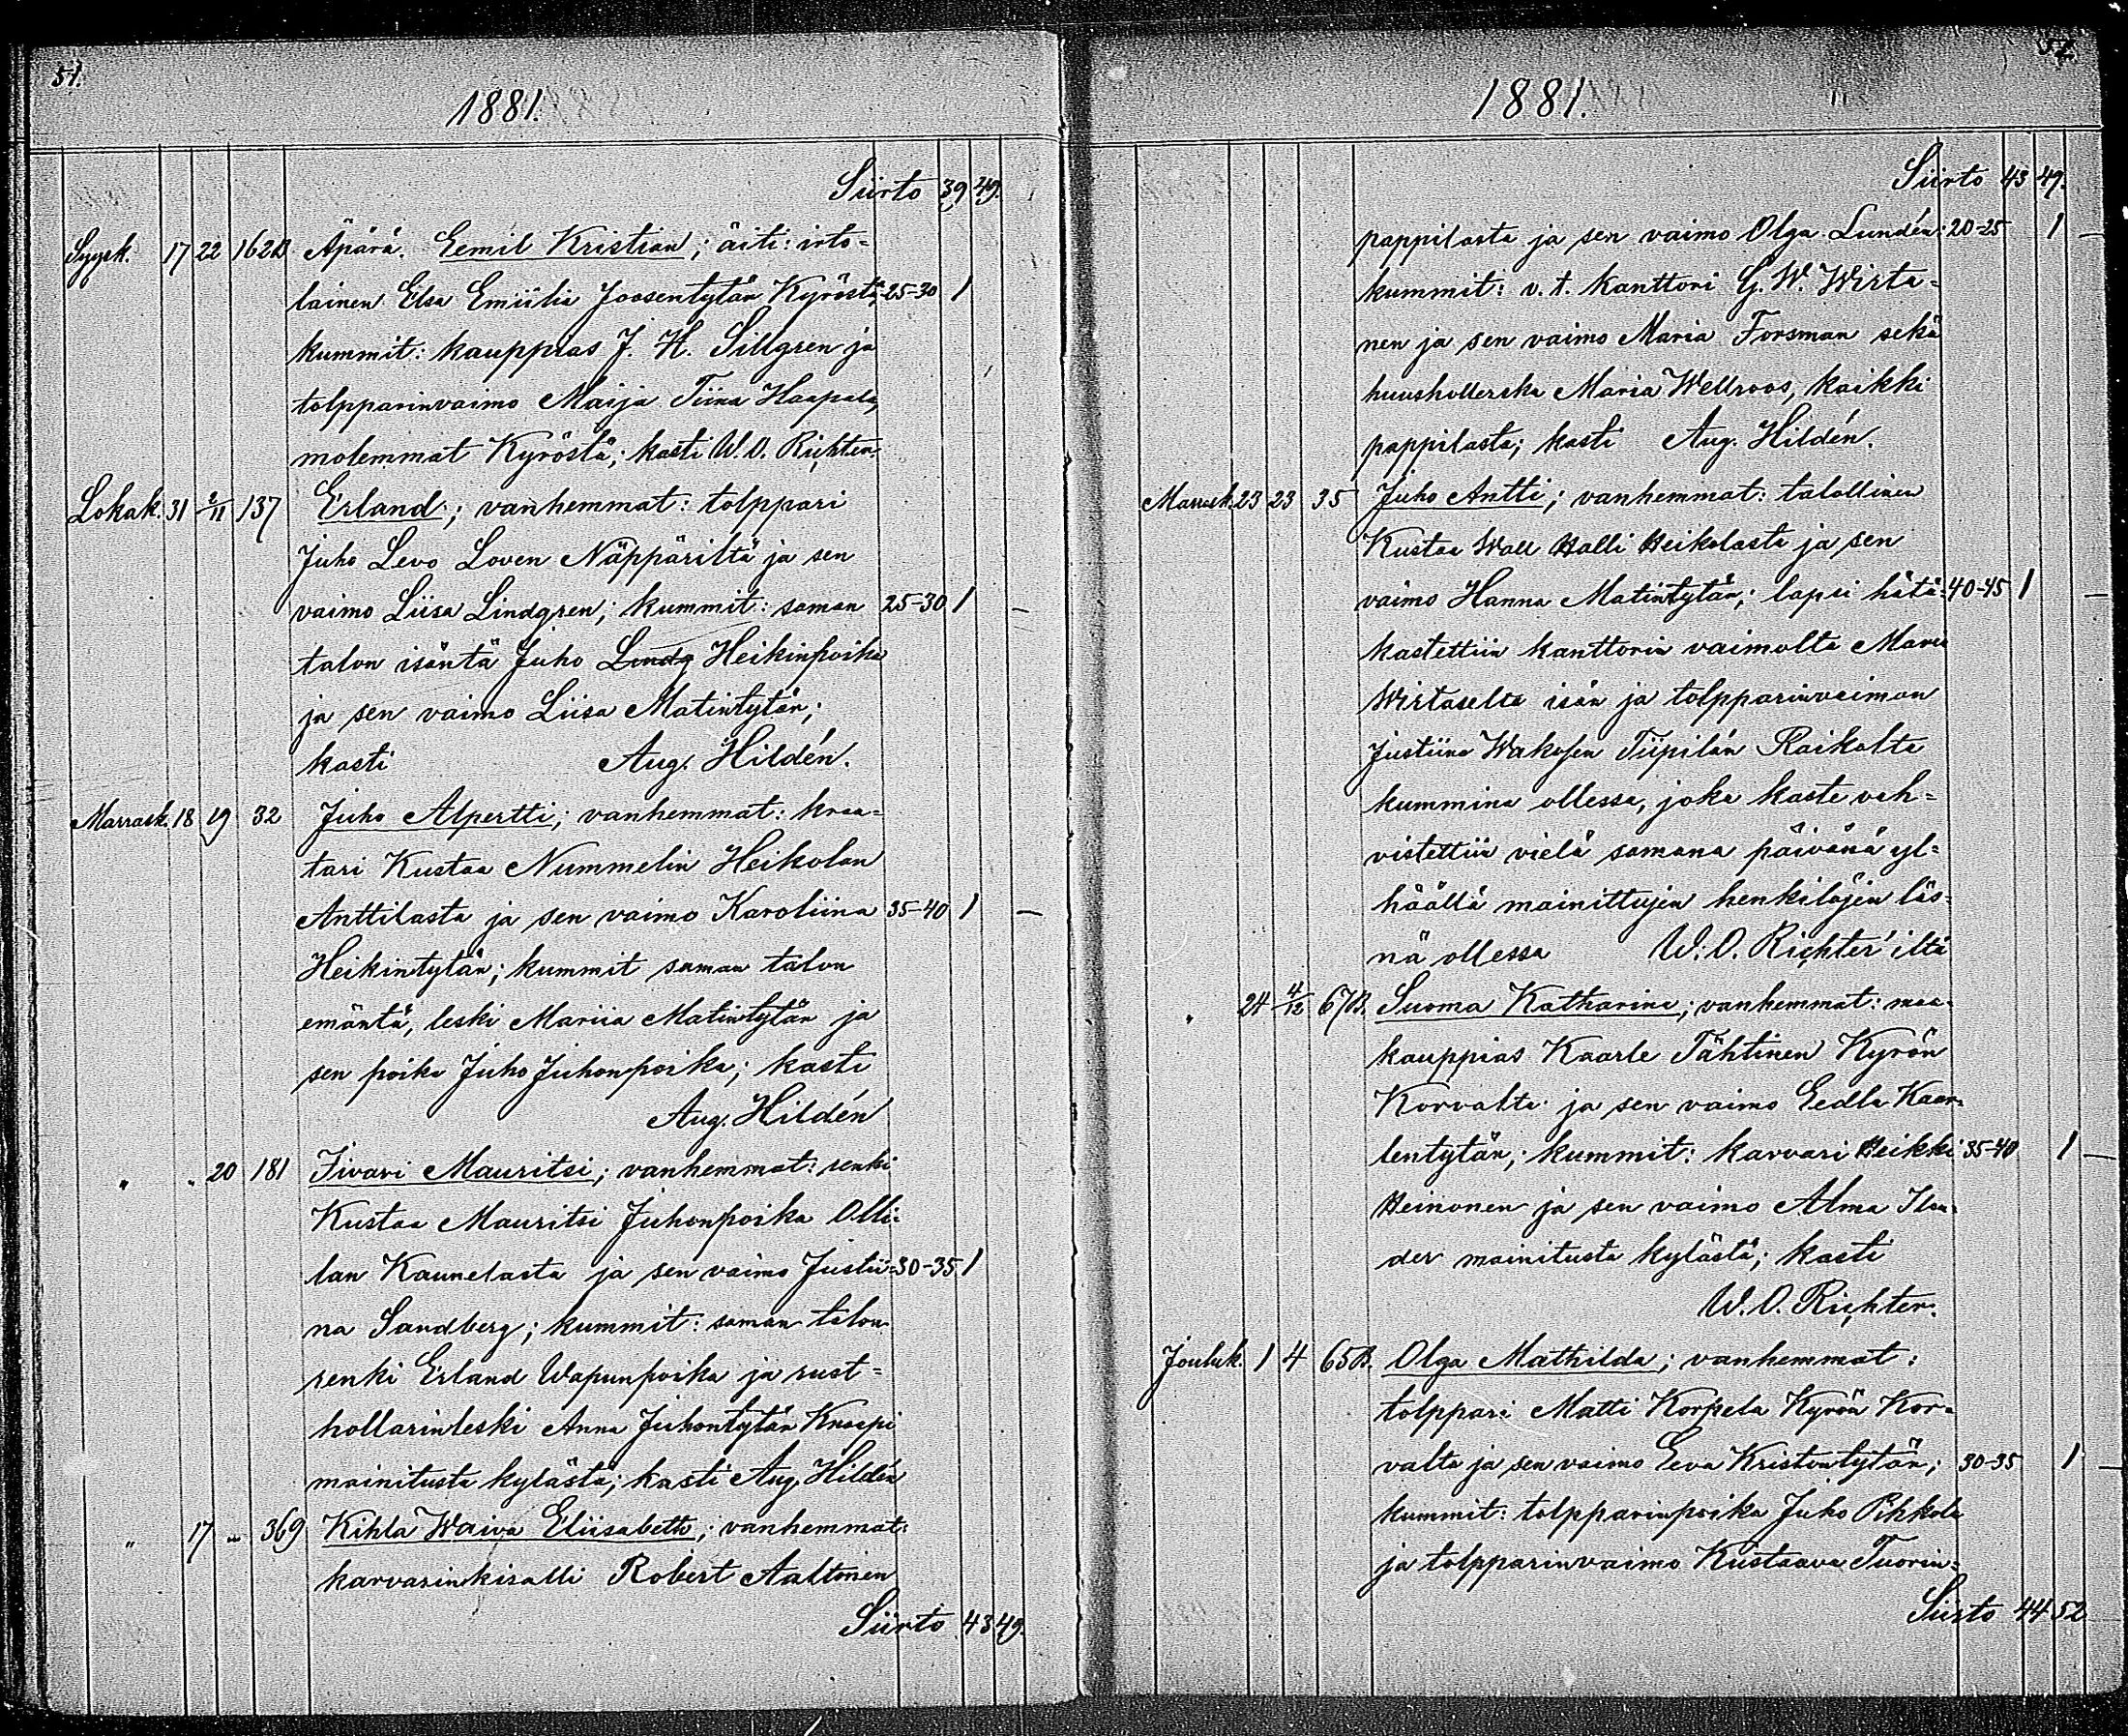 51.
1881.
Siirto 39 49.
Syysk. 17 22 162B Äpärä. Eemil Kristian; äiti: irto-
lainen Elsa Emiilia Joosentytär Kyröstä; 25-30 1
kummit: kauppias J. H. Sillgren ja
tolpparinvaimo Maija Tiina Haapala,
molemmat Kyröstä; kasti W. O. Richter.
Lokak. 31 2/11 137 Erland; vanhemmat: tolppari
Juho Levo Loven Näppäriltä ja sen
vaimo Liisa Lindgren; kummit: saman 25-30 1 -
talon isäntä Juho Lindg Heikinpoika
ja sen vaimo Liisa Matintytär;
kasti Aug. Hildén.
Marrask. 18 19 32 Juho Alpertti; vanhemmat: kraa-
tari Kustaa Nummelin Heikolan
Anttilasta ja sen vaimo Karoliina 35-40 1 -
Heikintytär; kummit saman talon
emäntä, leski Mariia Matintytär ja
sen poika Juho Juhonpoika; kasti
Aug. Hildén
" " 20 181 Iivari Mauritsi; vanhemmat: renki
Kustaa Mauritsi Juhonpoika Olli-
lan Kaunelasta ja sen vaimo Justii- 30-35 1
na Sandberg; kummit: saman talon
renki Erland Wapunpoika ja rust-
hollarinleski Anna Juhontytär Knaapi
mainitusta kylästä; kasti Aug. Hildén
" 17 " 369 Kihla Waiva Eliisabetts; vanhemmat:
karvarinkisälli Robert Aaltonen
Siirto 43 49.
52.
1881.
Siirto 43 49.
pappilasta ja sen vaimo Olga Lundén; 20-25 1 -
kummit: v. t. kanttori G. W. Wirta-
nen ja sen vaimo Maria Forsman sekä
huushollerska Maria Wellroos, kaikki
pappilasta; kasti Aug. Hildén.
Marrask. 23 23 35 Juho Antti; vanhemmat: talollinen
Kustaa Wall Halli Heikolasta ja sen
vaimo Hanna Matintytär; lapsi hätä- 40-45 1 -
kastettiin kanttorin vaimolta Maria
Wirtaselta isän ja tolpparinvaimon
Justiina Tiipilän Raikolta
kummina ollessa, joka kaste vah-
vistettiin vielä samana päivänä yl-
häällä mainittujen henkilöjen läs-
nä ollessa W. O. Richter'iltä
" 24 4/12 67B. Suoma Katharina; vanhemmat: maa-
kauppias Kaarle Tähtinen Kyrön
Korvalta ja sen vaimo Eedla Kaar-
lentytär; kummit: karvari Heikki 35-40 1 -
Heinonen ja sen vaimo Alma Ilan-
der mainitusta kylästä; kasti
W. O. Richter.
Jouluk. 1 4 65B. Olga Mathilda; vanhemmat:
tolppari Matti Korpela Kyrön Kor-
valta ja sen vaimo Eeva Kristontytär; 30-35 1 -
kummit: tolpparinpoika Juho Pihkola
ja tolpparinvaimo Kustaava Tuorin-
Siirto 44 52